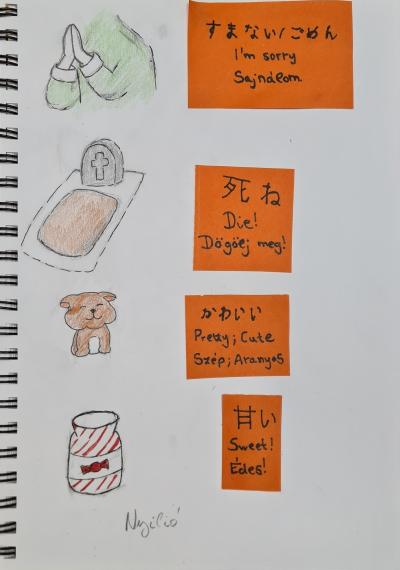 すまない/ごめん
I'm sorry
Sajnálom
死ね
Die!
Dögölj meg!
かわいい
Pretty; Cute
Szép; Aranyos
甘い
Sweet!
Édes!